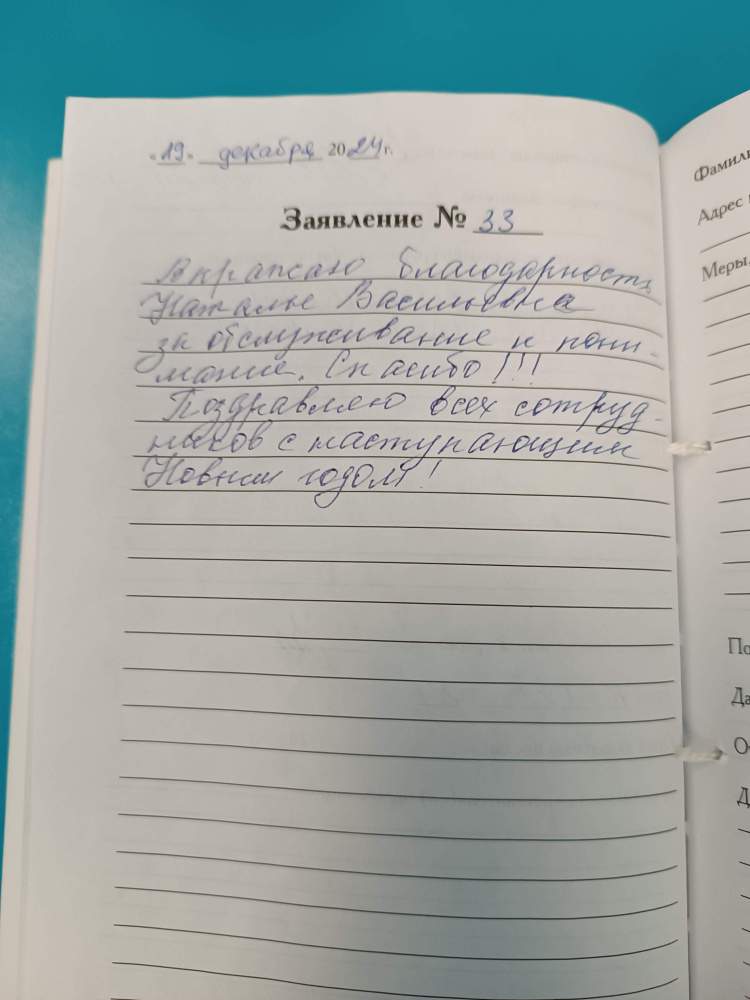 «19» декабря 2024 г.
Заявление № 33
Выражаю благодарность
Наталье Васильевна
за обслуживание и пони-
мание. Спасибо!!!
Поздравляю всех сотруд-
ников с наступающим
Новым годом!
Фамили
Адрес
Меры
По
Да
О
Д